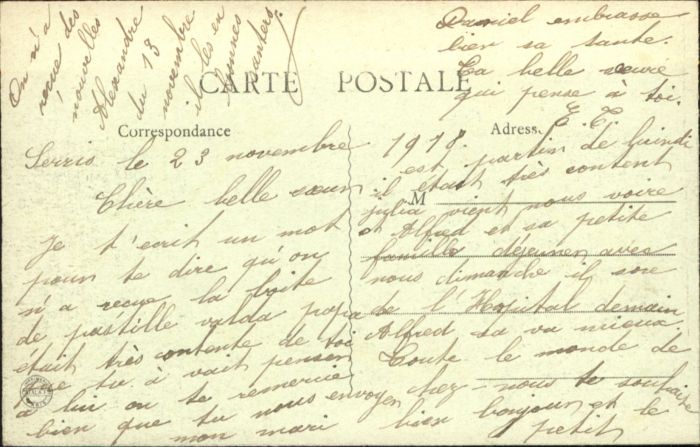 CARTE POSTALE
Correspondance
Adresse
M
Serris le 23 novembre 1918.
Chère belle sœur
Je t'ecrit un mot
pour te dire qu'on
n'a recue la boite
de pastille valda papa
était très contente de toi
que tu à vait penser
à lui on te remercie
bien que tu nous envoyer
mon mari
est partin de lundi
il était très content
julia vient nous voire
et Alfred et sa petite
famille déjeuner aves
nous dimanche il sore
de l'Hospital demain
Alfred sa va mieux.
Toute le monde de
chez-nous te souhaite
bien bonjour et le
petit
Daniel embrasse
bien sa tante.
Ta belle sœure
qui pense à toi.
E. C.
On n'a
reçue des
nouvelles
Alexandre
du 13
novembre
il les en